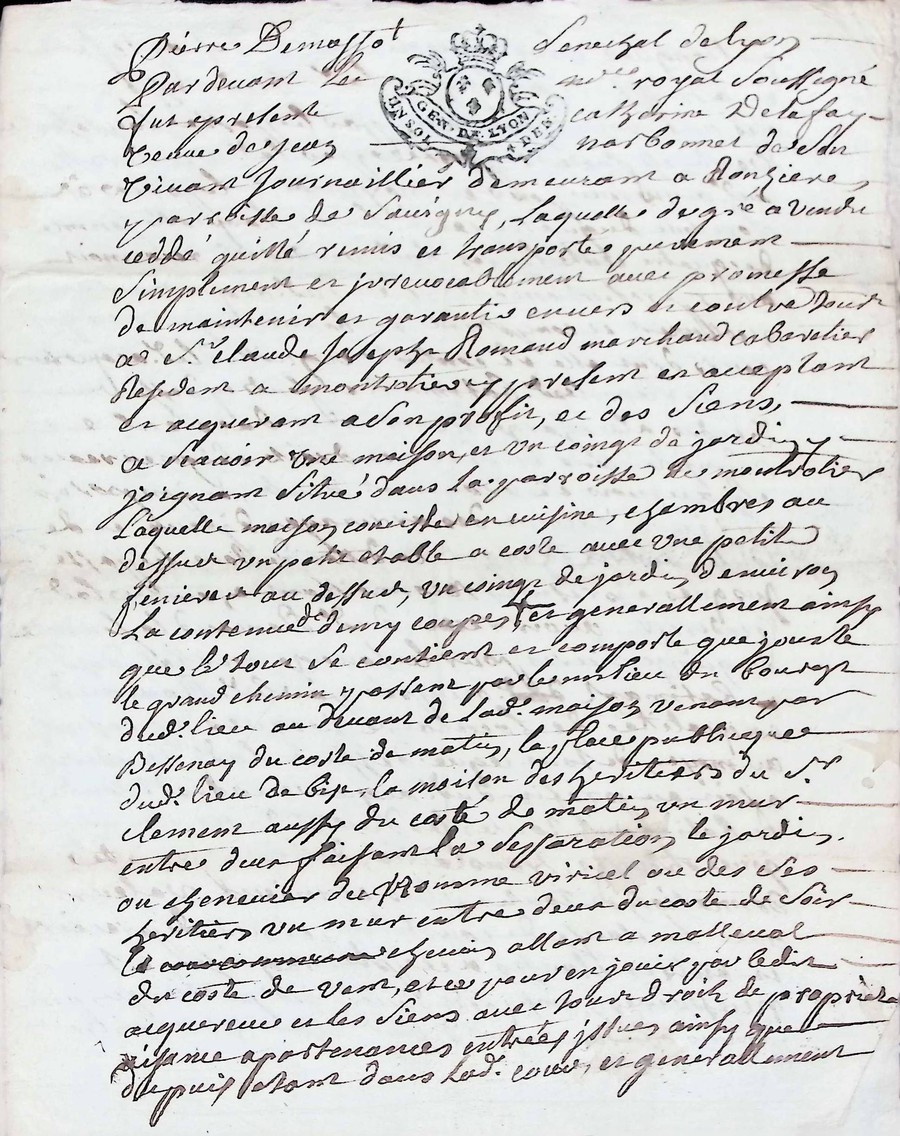 Pierre Demasso^t Senechal de lyon
Pardevant Le no^re royal Soussigné
fut presente catherine Delafay
veuve de jean narbonnet de Son
vivant journaillier demeurant a Ronziere
parroisse de Savigny, laquelle de gré a vendu
ceddé quitté remis et transporté purement
Simplement et jrrevocablement avec promesse
de maintenir et garantir envers et contre tous
a S^r. claude joseph Romand marchand cabaretier
Resident a montrotier present et acceptant
et acquerant a Son profit, et des Siens,
a Scavoir une maison, et un coingt de jardin
joignant Sitvé dans La parroisse de montrotier
Laquelle maison conciste en cuisine, chambres au
dessus un petit etable a costé avec une petite
feniere au dessus, un coingt de jardin denviron
La contenue de demy coupe, et generallement ainsy
que le tout Se contient et comporte que jouste
le grand chemin passant par le milieu du bourgt
dud. lieu au devant de Lad. maison venant par
Bessenay du costé de matin, la place publicque
dud. lieu de bize, la maison des heritiers du S^r.
clement aussy du costé de matin un mur
entre deux faisant la Sepparation, le jardin
ou chenevier du nomme viricel ou des Ses
heritiers un mur entre deux du costé de Soir
le chemin allant a malleval
du costé de vent, et ce pour en jouir par ledit
acquereur et les Siens avec tout droit de proprieté
aisance apartenances entrées jssues ainsy que
depuis etant dans Lad. cour, et generallement